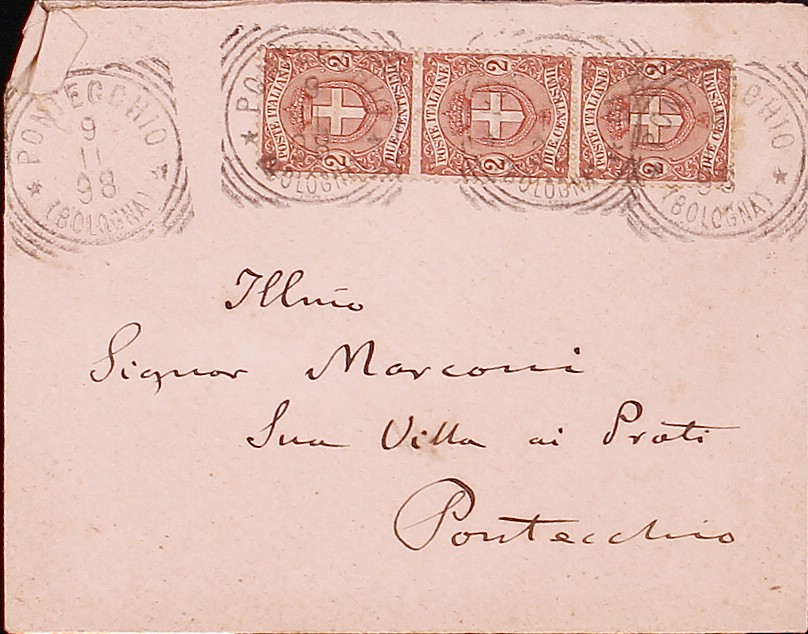 PONTECCHIO
9
11
98
(BOLOGNA)
POSTE ITALIANE
2
2
DUE CENTESIMI
(BOLOGNA)
POSTE ITALIANE
2
2
DUE CENTESIMI
(BOLOGNA)
POSTE ITALIANE
2
2
DUE CENTESIMI
(BOLOGNA)
Illmo
Signor Marconi
Sua Villa ai Prati
Pontecchio